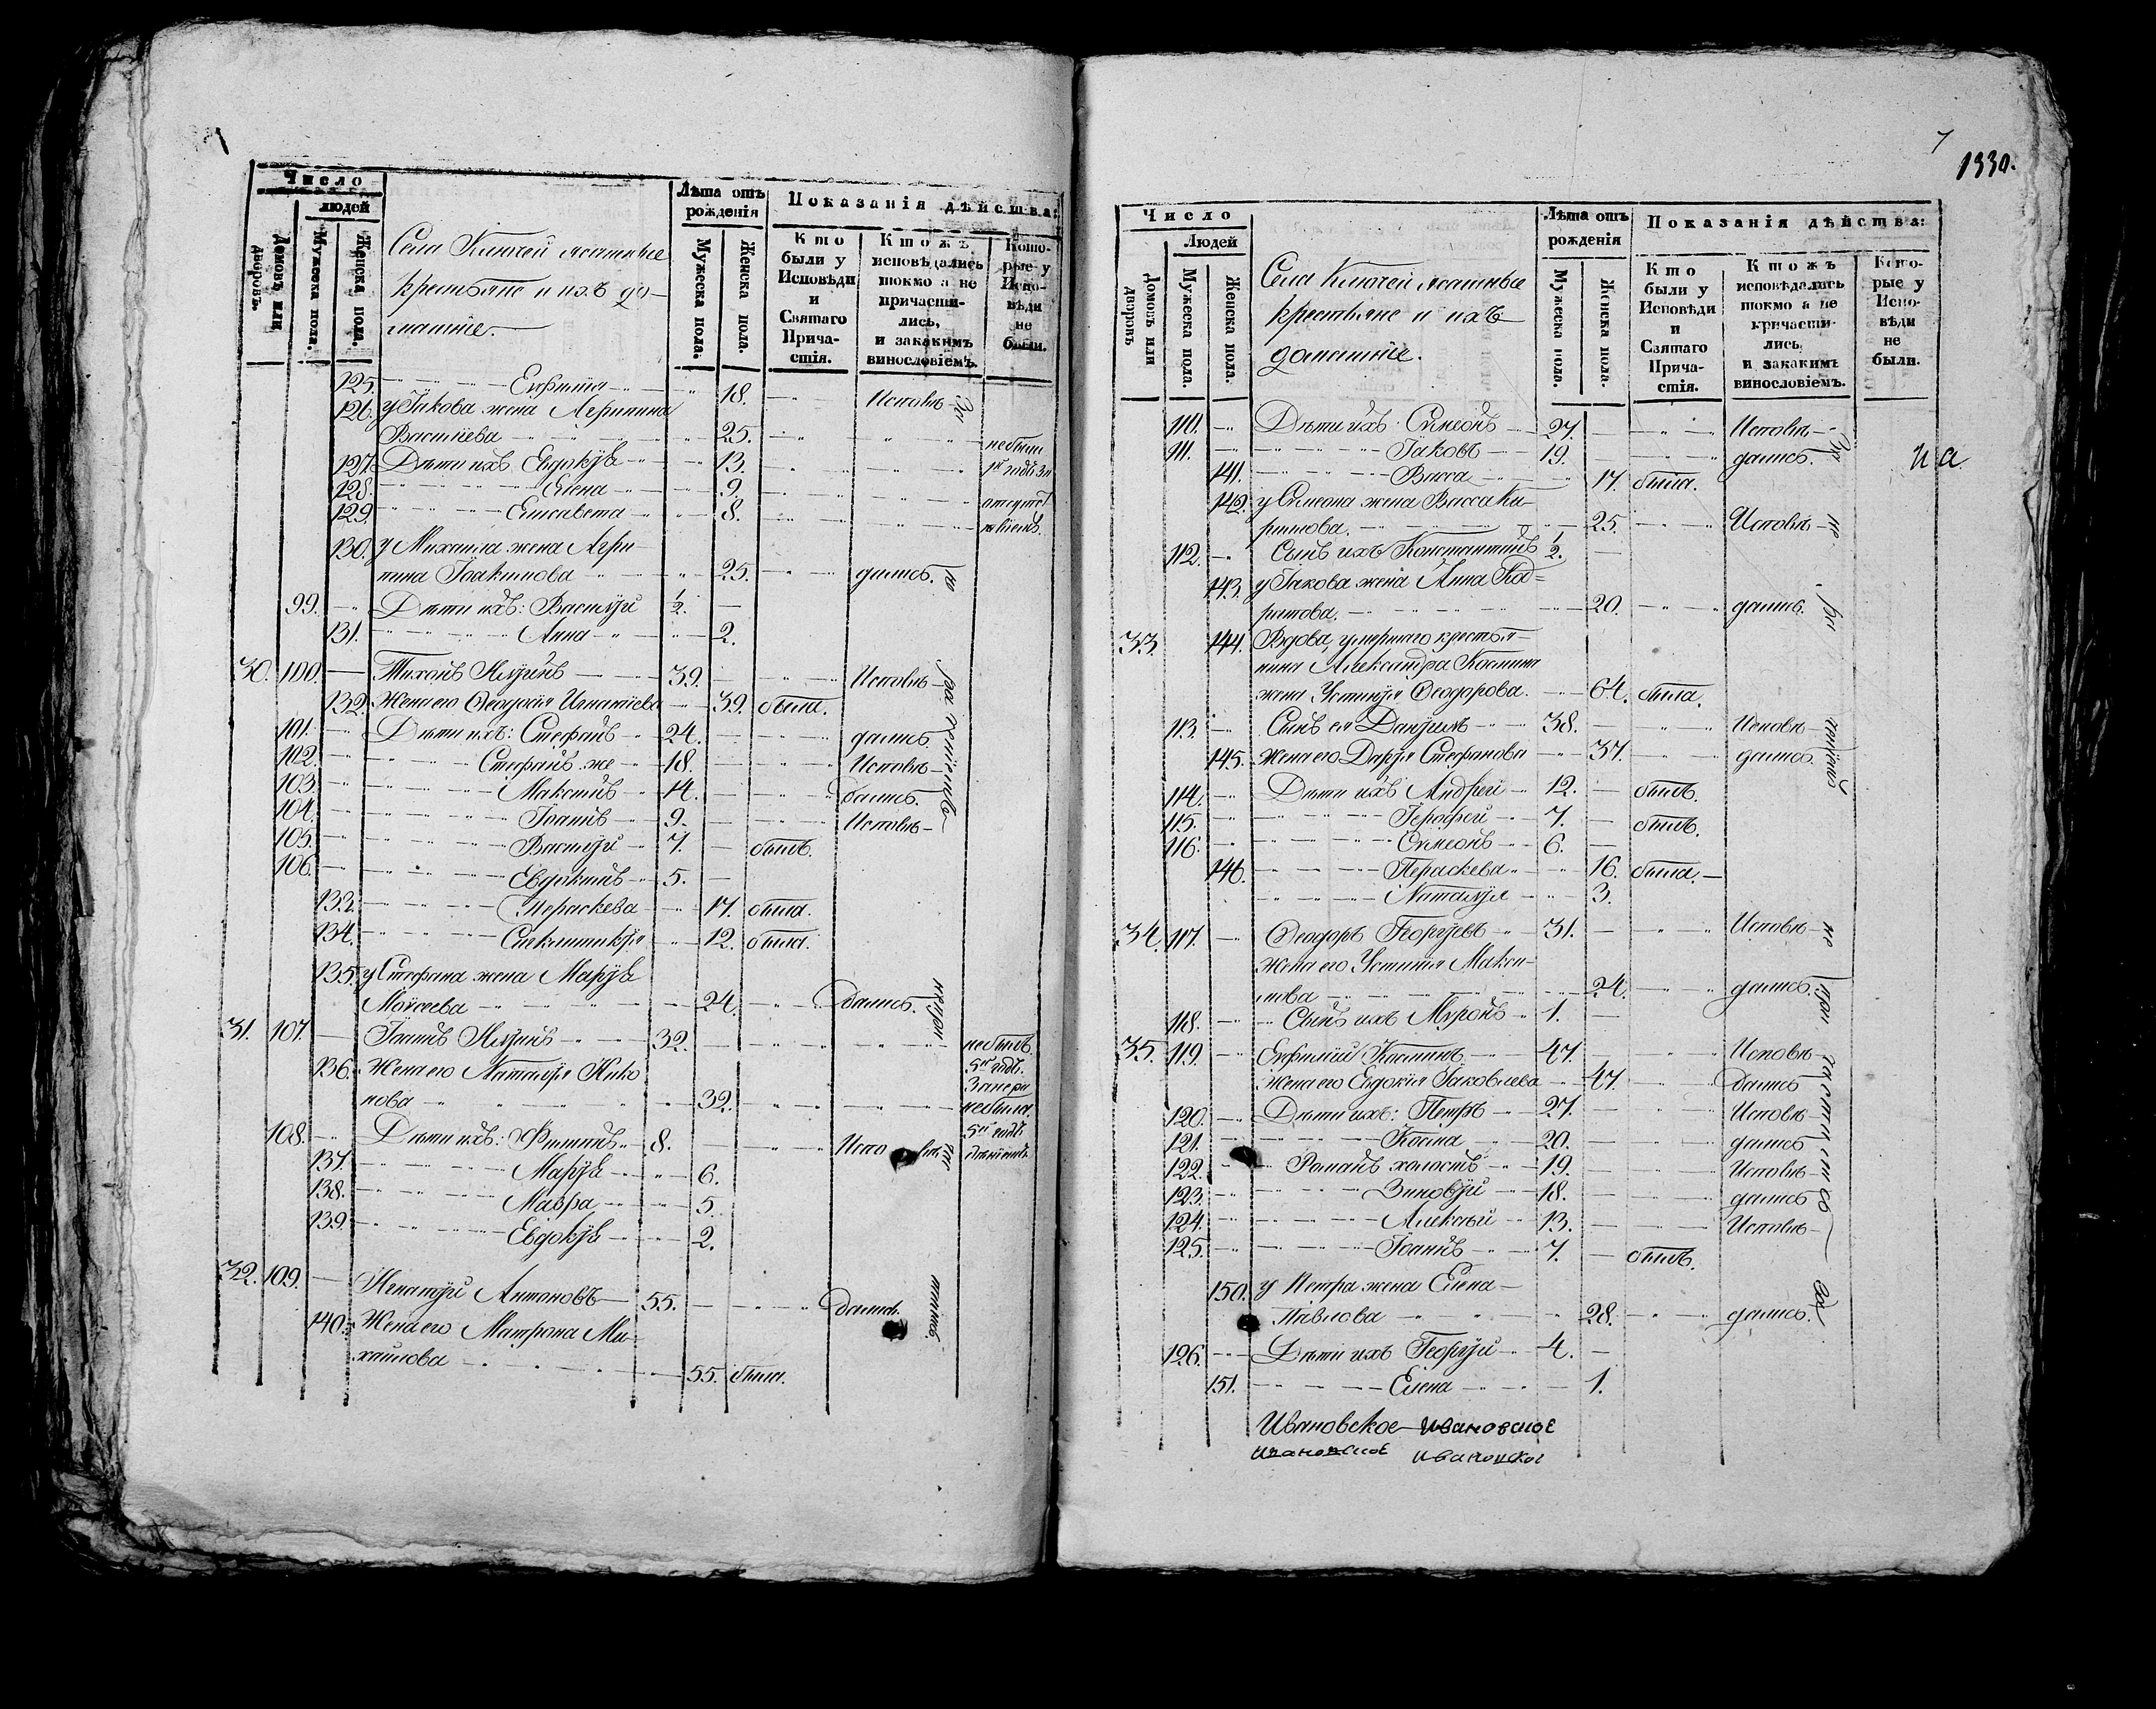 Число
людей
Домовъ или дворовъ.
Мужеска пола.
Женска пола.
Села Ключей ясашные
крестьяне и ихъ до-
машніе.
Лѣта отъ
рожденія
Мужеска пола.
Женска пола.
Показанія дѣйства:
Кто
были у
Исповѣди
и
Святаго
Прича-
стія.
Ктожъ
исповѣдались
токмо а не
причасти-
лись,
и закакимъ
винословіемъ.
Кото-
рые у
Испо-
вѣди
не
были.
125. Евфимія 18. Исповѣ-
126. у Іакова жена Агрипина
Василіева 25. небыли
127. Дѣти ихъ Евдокія 13.
128. Елена 9.
129. Елисавета 8.
130. у Михаила жена Агри-
пина Іоакимова 25. дались.
99. Дѣти ихъ: Василій 1/2.
131. Анна 2.
30. 100. Тихонъ 39. Исповѣ-
132. Жена его Ѳеодосія Игнатіева 39. была.
101. Дѣти ихъ: Стефанъ 24. дались
102. Стефанъ же 18. Исповѣ-
103. Максимъ 14. дались.
104. Іоаннъ 9. Исповѣ-
105. Василій 7. былъ.
106. Евдокимъ 5.
133. Пераскева 17. была.
134. 12. была.
135. у Стефана жена Марія
Моисеева 24. дались.
31. 107. Іоаннъ 32. небылъ
136. Жена его Наталія Нико
нова 32. небыла
108. Дѣти ихъ: 8. Испо вѣ
137. Марія 6.
138. Мавра 5.
139. Евдокія 2.
32. 109. Антоновъ 55. дались.
140. Жена его Матрона Ми-
хаилова 55. была.
7
1330.
Число
Людей
Домовъ или дворовъ
Мужеска пола.
Женска пола.
Села Ключей ясашные
крестьяне и ихъ
домашніе.
Лѣта отъ
рожденія
Мужеска пола.
Женска пола.
Показанія дѣйства:
Кто
были у
Исповѣди
и
Святаго
Прича-
стія.
Ктожъ
исповѣдались
токмо а не
причасти-
лись,
и закакимъ
винословіемъ.
Кото-
рые у
Испо-
вѣди
не
были.
110. Дѣти ихъ Симеонъ 27. Исповѣ-
111. Іаковъ 19. дались.
141. Васса 17. была.
142. у Симеона жена Васса Ки-
рилова. 25. Исповѣ- не
112. Сынъ ихъ Константинъ 1/2.
143. у Іакова жена Анна
20. дались.
33. 144. Вдова, умершаго крестья-
нина Александра Космина
жена Устинія Ѳеодорова. 64. была.
113. Сынъ ея Даніилъ 38. Исповѣ-
145. Жена его Дарія Стефанова 37. дались.
114. Дѣти ихъ Андрей 12. былъ.
115. Іерофей 7. былъ.
116. Симеонъ 6.
146. Пераскева 16. была.
Наталія 3.
34. 117. Ѳеодоръ Георгіевъ 31. Исповѣ- не
Жена его Устинія Макси-
мова 24. дались. при
118. Сынъ ихъ Муронъ 1.
35. 119. Евфимій Косминъ 47. Исповѣ-
Жена его Евдокія Іаковлева 47. дались
120. Дѣти ихъ: Петръ 27. Исповѣ-
121. Косма 20. дались
122. Романъ холостъ 19. Исповѣ-
123. Зиновій 18. дались
124. Алексѣй 13. Исповѣ-
125. Іоаннъ 7. былъ.
150. у Петра жена Елена
Павлова 28. дались.
126. Дѣти ихъ Георгій 4.
151. Елена 1.
Ивановское Ивановское
Ивановское Ивановское